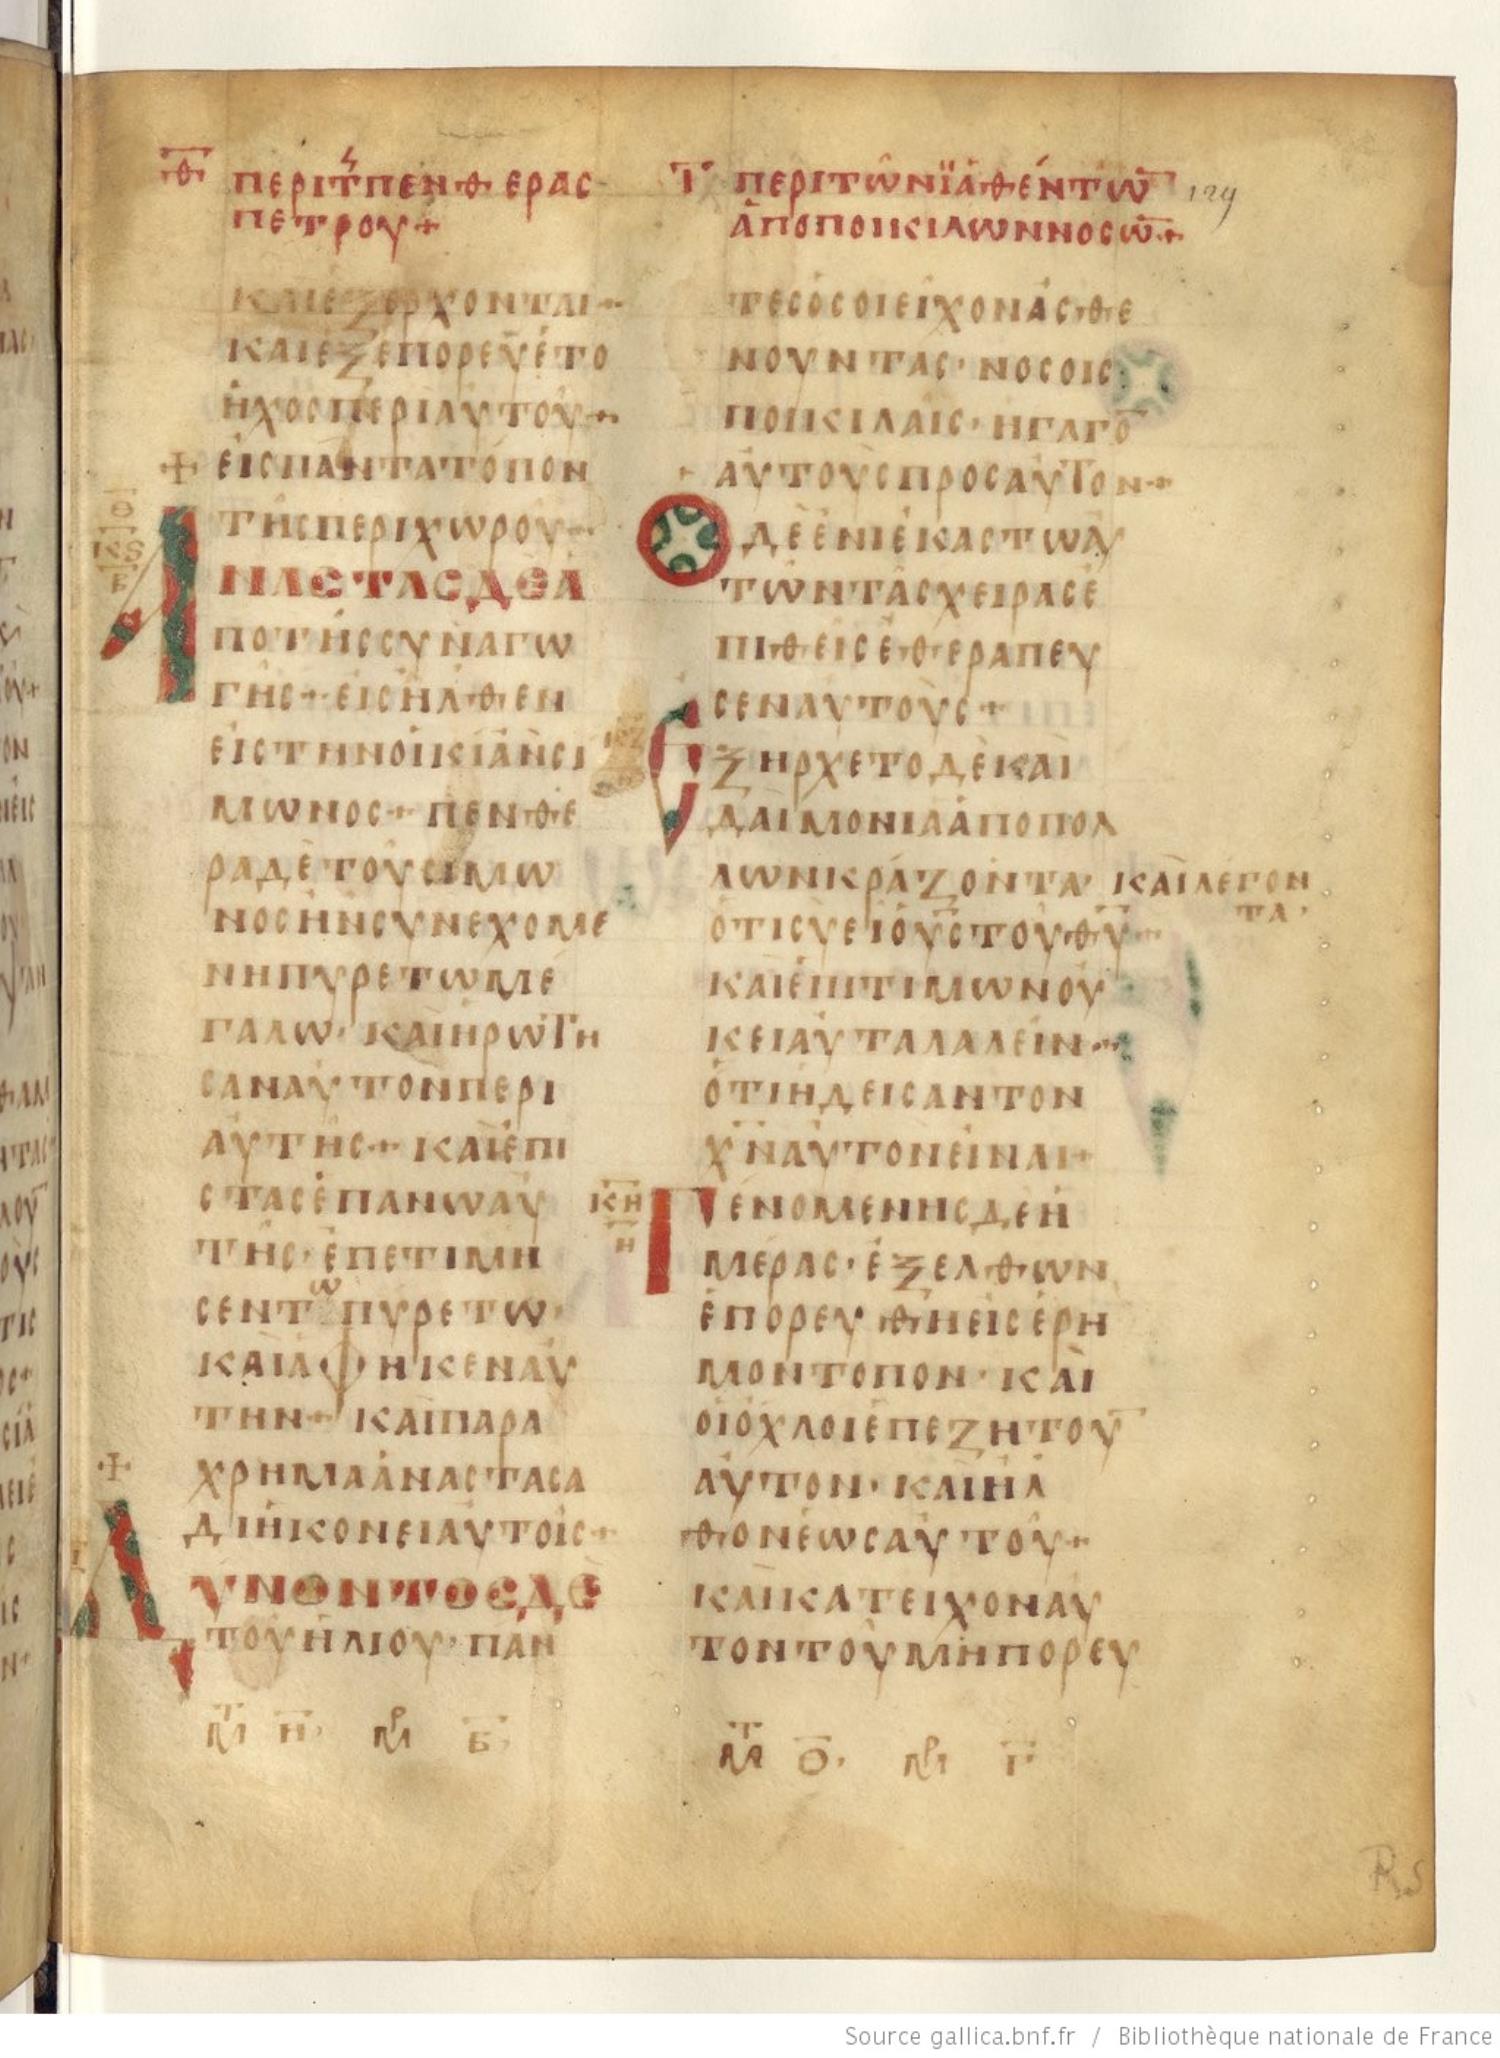 Θ ΠΕΡΙ ΤΗΣ ΠΕΝΘΕΡΑΣ
ΠΕΤΡΟΥ+
ΚΑΙΕΞΕΡΧΟΝΤΑΙ
ΚΑΙΕΞΕΠΟΡΕΥΕΤΟ
ΗΧΟϹΠΕΡΙΑΥΤΟΥ+
ΕΙϹΠΑΝΤΑΤΟΠΟΝ
ΤΗϹΠΕΡΙΧΩΡΟΥ
ΑΝΑϹΤΑϹΔΕΑ
ΠΟΤΗϹϹΥΝΑΓΩ
ΓΗϹ+ΕΙϹΗΛΘΕΝ
ΕΙϹΤΗΝΟΙΚΙΑΝϹΙ
ΜΩΝΟϹ+ΠΕΝΘΕ
ΡΑΔΕΤΟΥϹΙΜΩ
ΝΟϹΗΝϹΥΝΕΧΟΜΕ
ΝΗΠΥΡΕΤΩΜΕ
ΓΑΛΩ·ΚΑΙΗΡΩΤΗ
ϹΑΝΑΥΤΟΝΠΕΡΙ
ΑΥΤΗϹ+ΚΑΙΕΠΙ
ϹΤΑϹΕΠΑΝΩΑΥ
ΤΗϹ·ΕΠΕΤΙΜΗ
ϹΕΝΤΩΠΥΡΕΤΩ·
ΚΑΙΑΦΗΚΕΝΑΥ
ΤΗΝ+ΚΑΙΠΑΡΑ
ΧΡΗΜΑΑΝΑϹΤΑϹΑ
ΔΙΗΚΟΝΕΙΑΥΤΟΙϹ+
ΔΥΝΟΝΤΟϹΔΕ
ΤΟΥΗΛΙΟΥ·ΠΑΝ
Ι ΠΕΡΙΤΩΝΪΑΘΕΝΤΩ̅
ΑΠΟΠΟΙΚΙΛΩΝΝΟϹΩ̅+
129
ΤΕϹΟϹΟΙΕΙΧΟΝΑϹΘΕ
ΝΟΥΝΤΑϹ·ΝΟϹΟΙϹ
ΠΟΙΚΙΛΑΙϹ·ΗΓΑΓΟ̅
ΑΥΤΟΥϹΠΡΟϹΑΥΤΟΝ+
ΟΔΕΕΝΙΕΚΑϹΤΩΑΥ
ΤΩΝΤΑϹΧΕΙΡΑϹΕ
ΠΙΘΕΙϹΕΘΕΡΑΠΕΥ
ϹΕΝΑΥΤΟΥϹ+
ΕΞΗΡΧΕΤΟΔΕΚΑΙ
ΔΑΙΜΟΝΙΑΑΠΟΠΟΛ
ΛΩΝΚΡΑΖΟΝΤΑ·ΚΑΙΛΕΓΟΝ
ΤΑ·
ΟΤΙϹΥΕΙΟΥ̅ϹΤΟΥΘ̅Υ̅
ΚΑΙΕΠΙΤΙΜΩΝΟΥ
ΚΕΙΑΥΤΑΛΑΛΕΙΝ
ΟΤΙΗΔΕΙϹΑΝΤΟΝ
Χ̅Ν̅ΑΥΤΟΝΕΙΝΑΙ+
ΚΗ
Η
ΓΕΝΟΜΕΝΗϹΔΕΗ
ΜΕΡΑϹ·ΕΞΕΛΘΩΝ
ΕΠΟΡΕΥΘΗΕΙϹΕΡΗ
ΜΟΝΤΟΠΟΝ·ΚΑΙ
ΟΙΟΧΛΟΙΕΠΕΖΗΤΟΥ̅
ΑΥΤΟΝ·ΚΑΙΗΛ
ΘΟΝΕΩϹΑΥΤΟΥ+
ΚΑΙΚΑΤΕΙΧΟΝΑΥ
ΤΟΝΤΟΥΜΗΠΟΡΕΥ
Source gallica.bnf.fr / Bibliothèque nationale de France